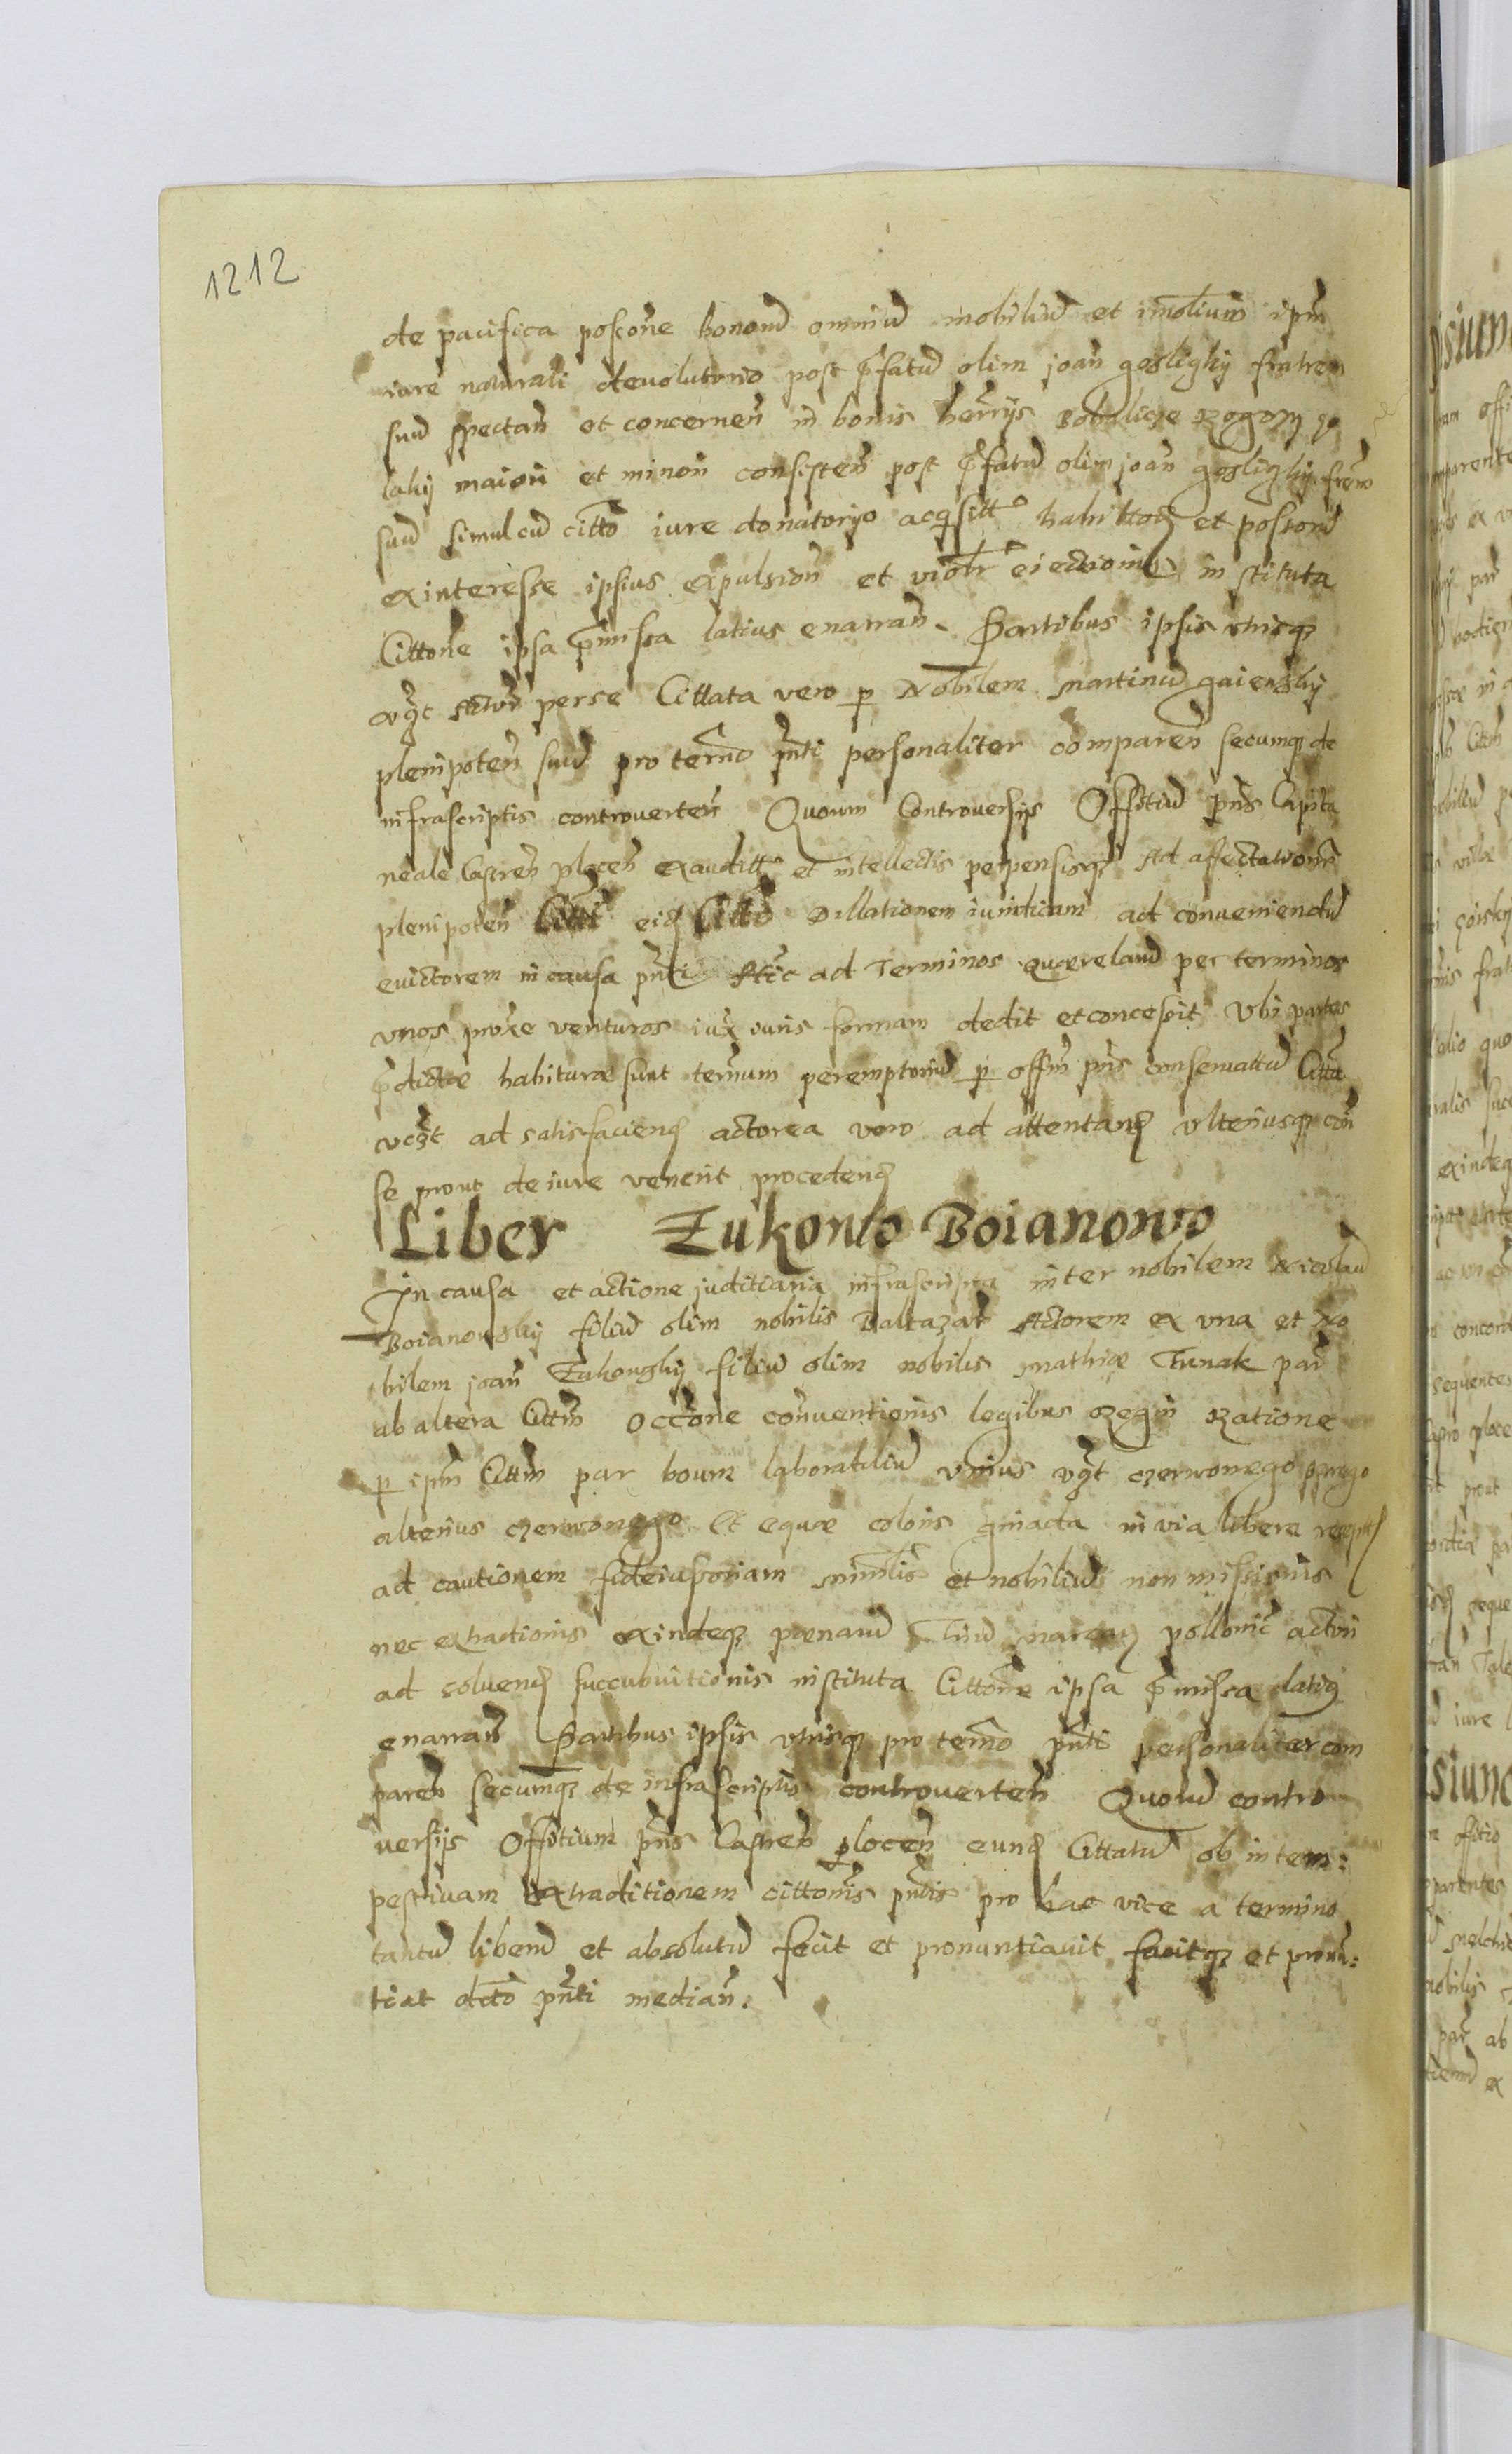 1212
de pacifica possone bonorū omniū mobiliū et imolium ipm
iure naturali devolutorio post pfatū olim joañ gosligky fratrem
suū spectañ et concerneñ in bonis herrijs Bobulicze Rogozy go
lakij maiori et minori consisteñ post pfatū olim joañ gosligky frem
suū simul cū citto iure donatorijo acqsitt habittoq et possorū
ex interesse ipsius expulsioñ et violr eiectioniq in stituta
Cittone ipsa pmissa latius enarrañ. Partibus ipsis utrisq
vqt Actrī per se Cittata vero p Nobilem Martinū gaiewsky
plenipoteñ suū pro termō pnti personaliter compareñ secumq de
infrascriptis controverteñ Quorum Controversijs Offitiū pns Capita
neale Castreñ ploceñ exauditt et intellectis perpensisq Ad affectationē
plenipoteñ Citti eid Cittō Dillationem iuridicam ad conveniendū
evictorem in causa pnti Atīc ad Terminos querelarū per terminos
unos proxe venturos iux iuris formam dedit et concessit Ubi partes
pdictæ habituræ sunt termum peremptoriū p offm pns conservattū Citta
vqt ad satisfaciend actorea vero ad attentand ulteriusq con
se prout de iure venerit procedend
Liber Zukowo Boianowo
In causa et actione juditiaria infrascripta inter nobilem Nicolaū
Boianowsky filiū olim nobilis Baltazar Actorem ex una et No
bilem joañ Zukowsky filiū olim nobilis Mathiæ Trnak par
ab altera Cittm Occone conventionis legibus Regni Ratione
p ipm Cittm par boum laboratiliū unius vqt czerwonego
alterius czerwonego Et equæ coloris gniada in via libere recept
ad cautionem fideiussoriam et nobiliū non missionis
nec extraditionis exindeq pœnarū Triū marcaq pollonic actori
ad solvend succubuitionis instituta Cittone ipsa pmissa latiq
enarrañ Partibus ipsis utrisq pro termō pnti personaliter com
pareñ secumq de infrascriptis controverteñ Quorū contro
versijs Offitium pns Castreñ ploceñ eund Cittatū ob intem:
pestivam Extraditionem cittonis pntis pro hac vice a termino
tantū liberū et absolutū fecit et pronuntiavit facitq et pronū:
tiat dcto pnti mediañ.